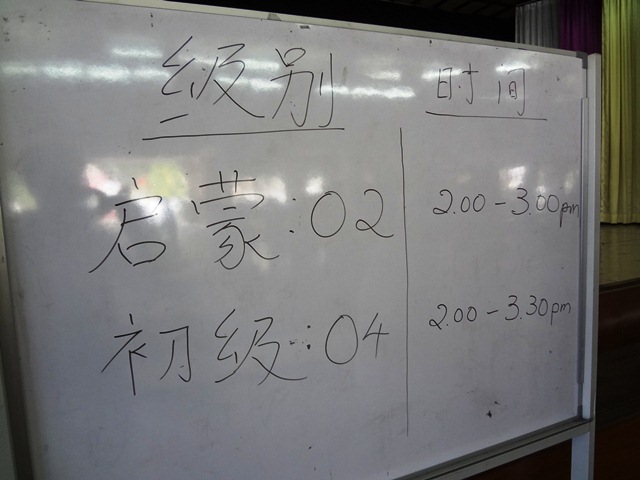 级别 时间
启蒙:02 2.00-3.00pm
初级:04 2.00-3.30pm